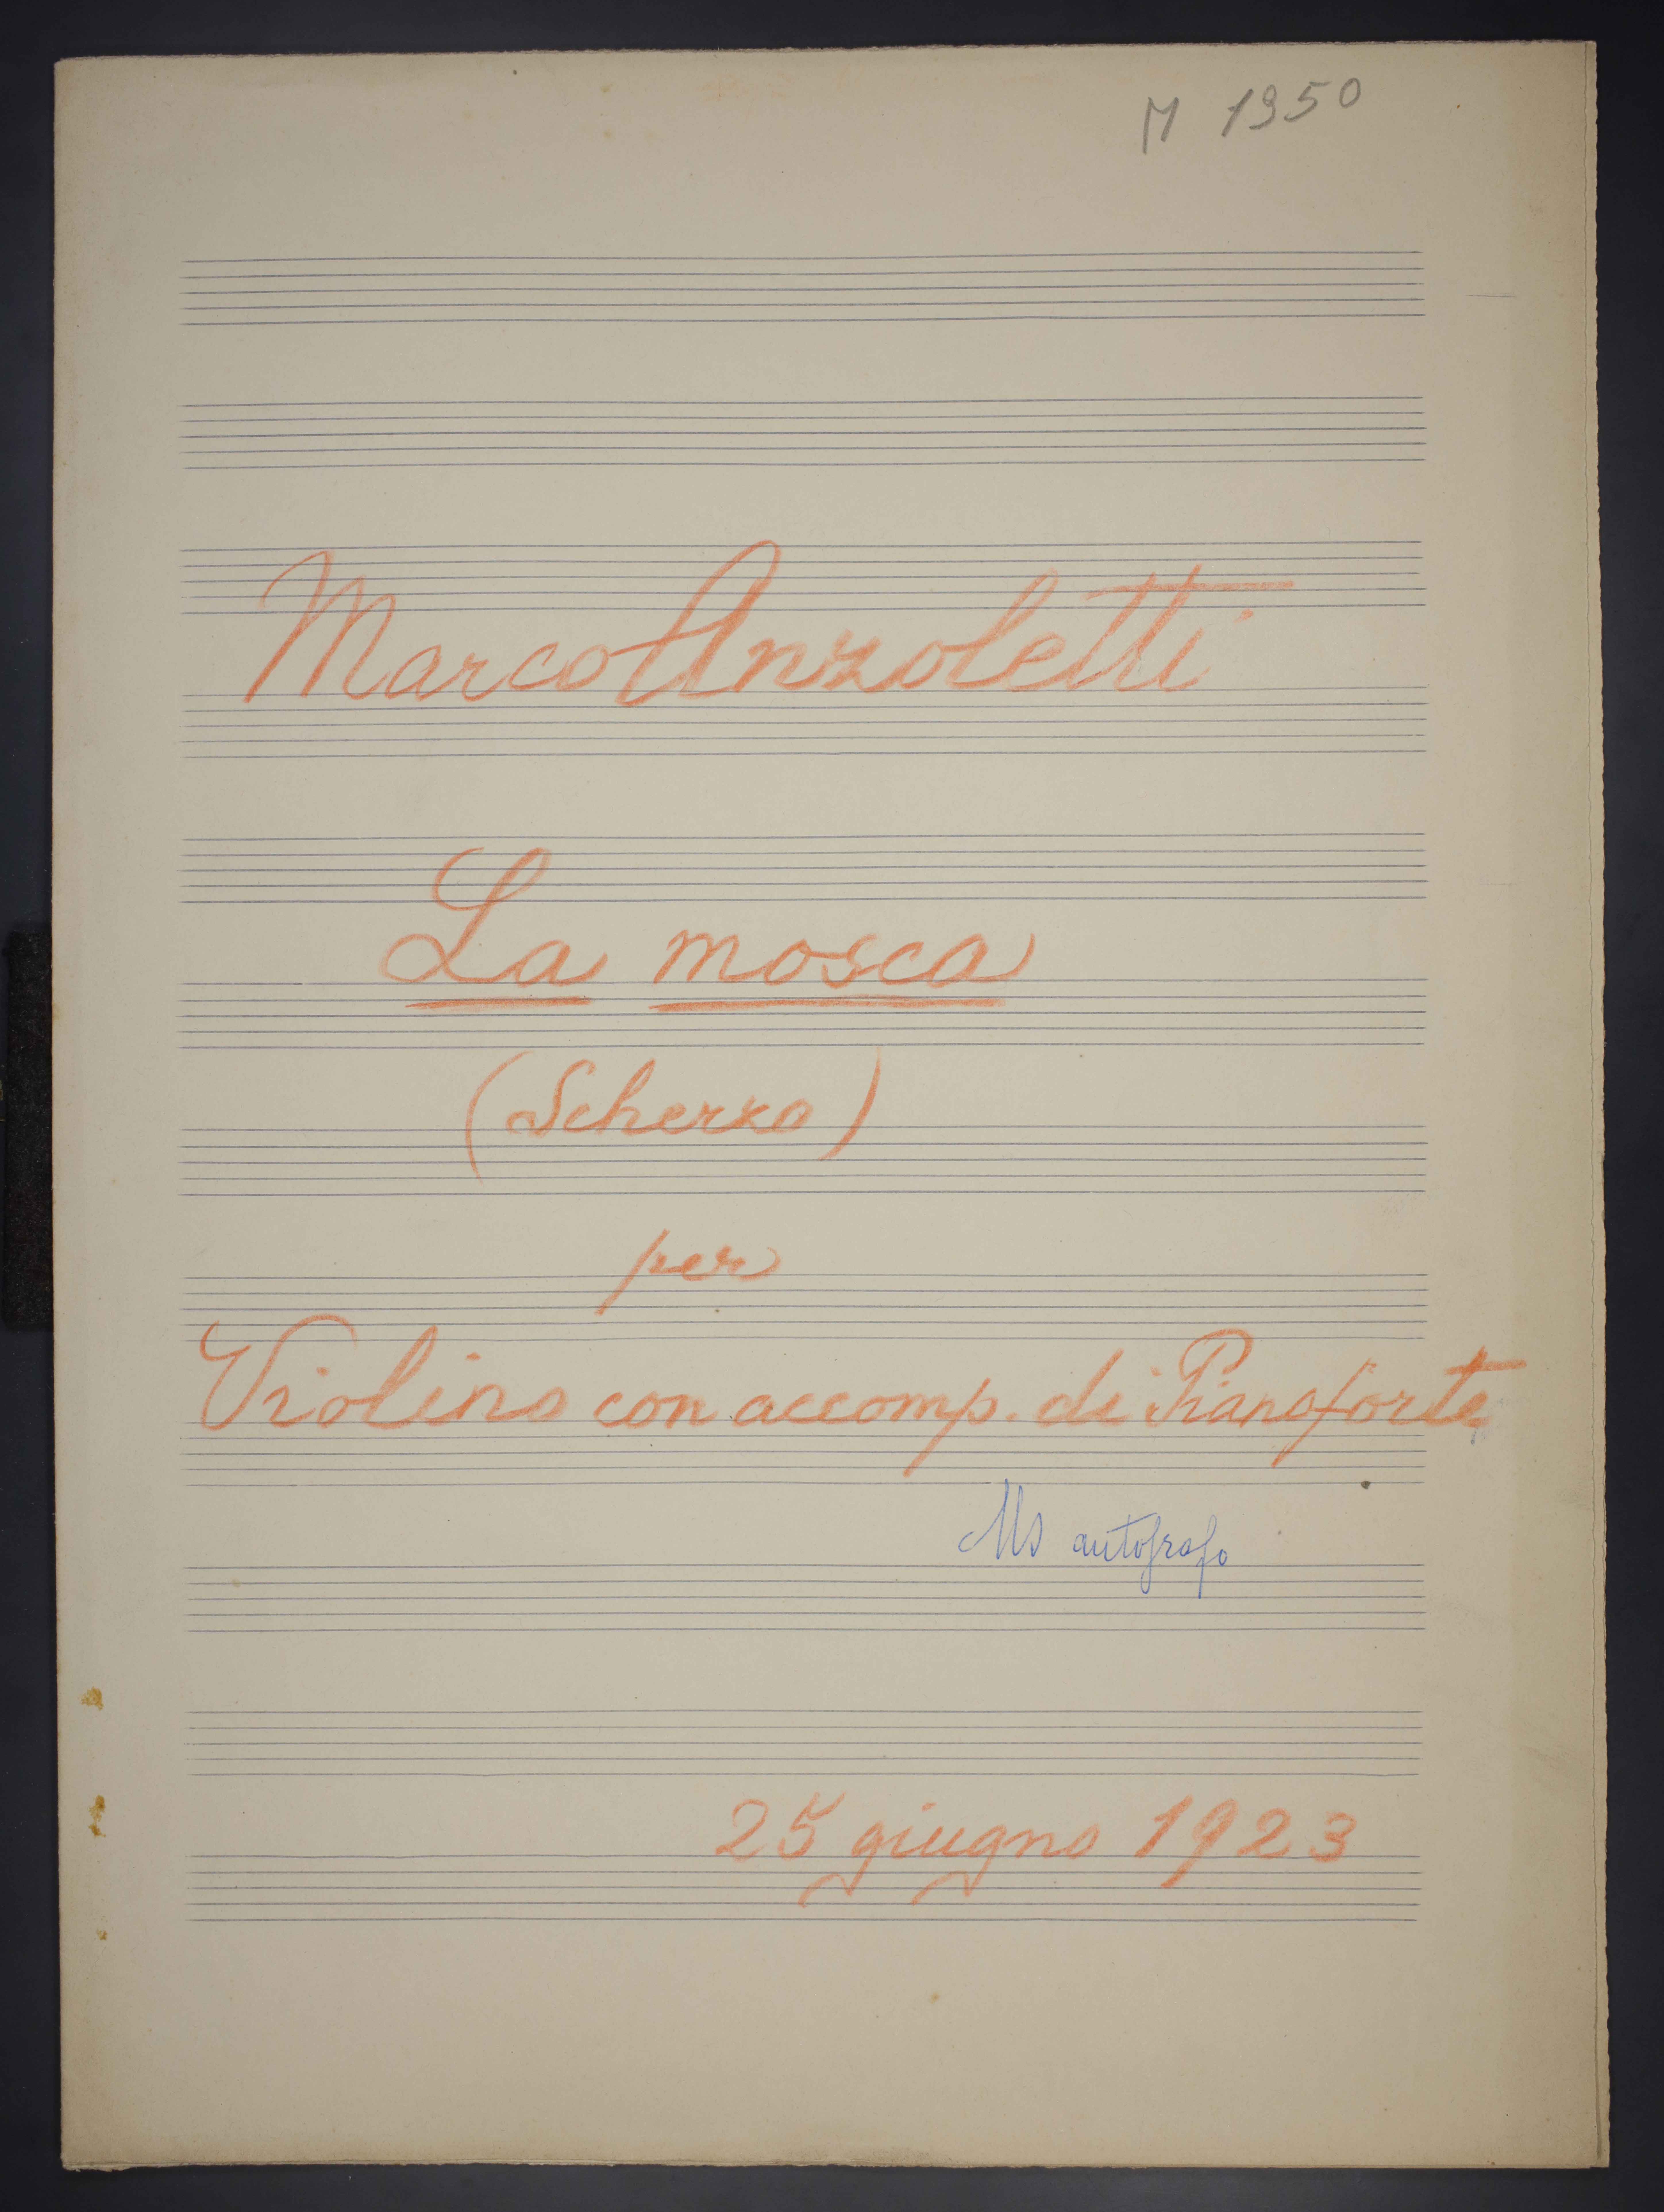 M 1950
Marco Anzoletti
La mosca
(Scherzo)
per
Violino con accomp. di Pianoforte
Ms autografo
25 giugno 1923